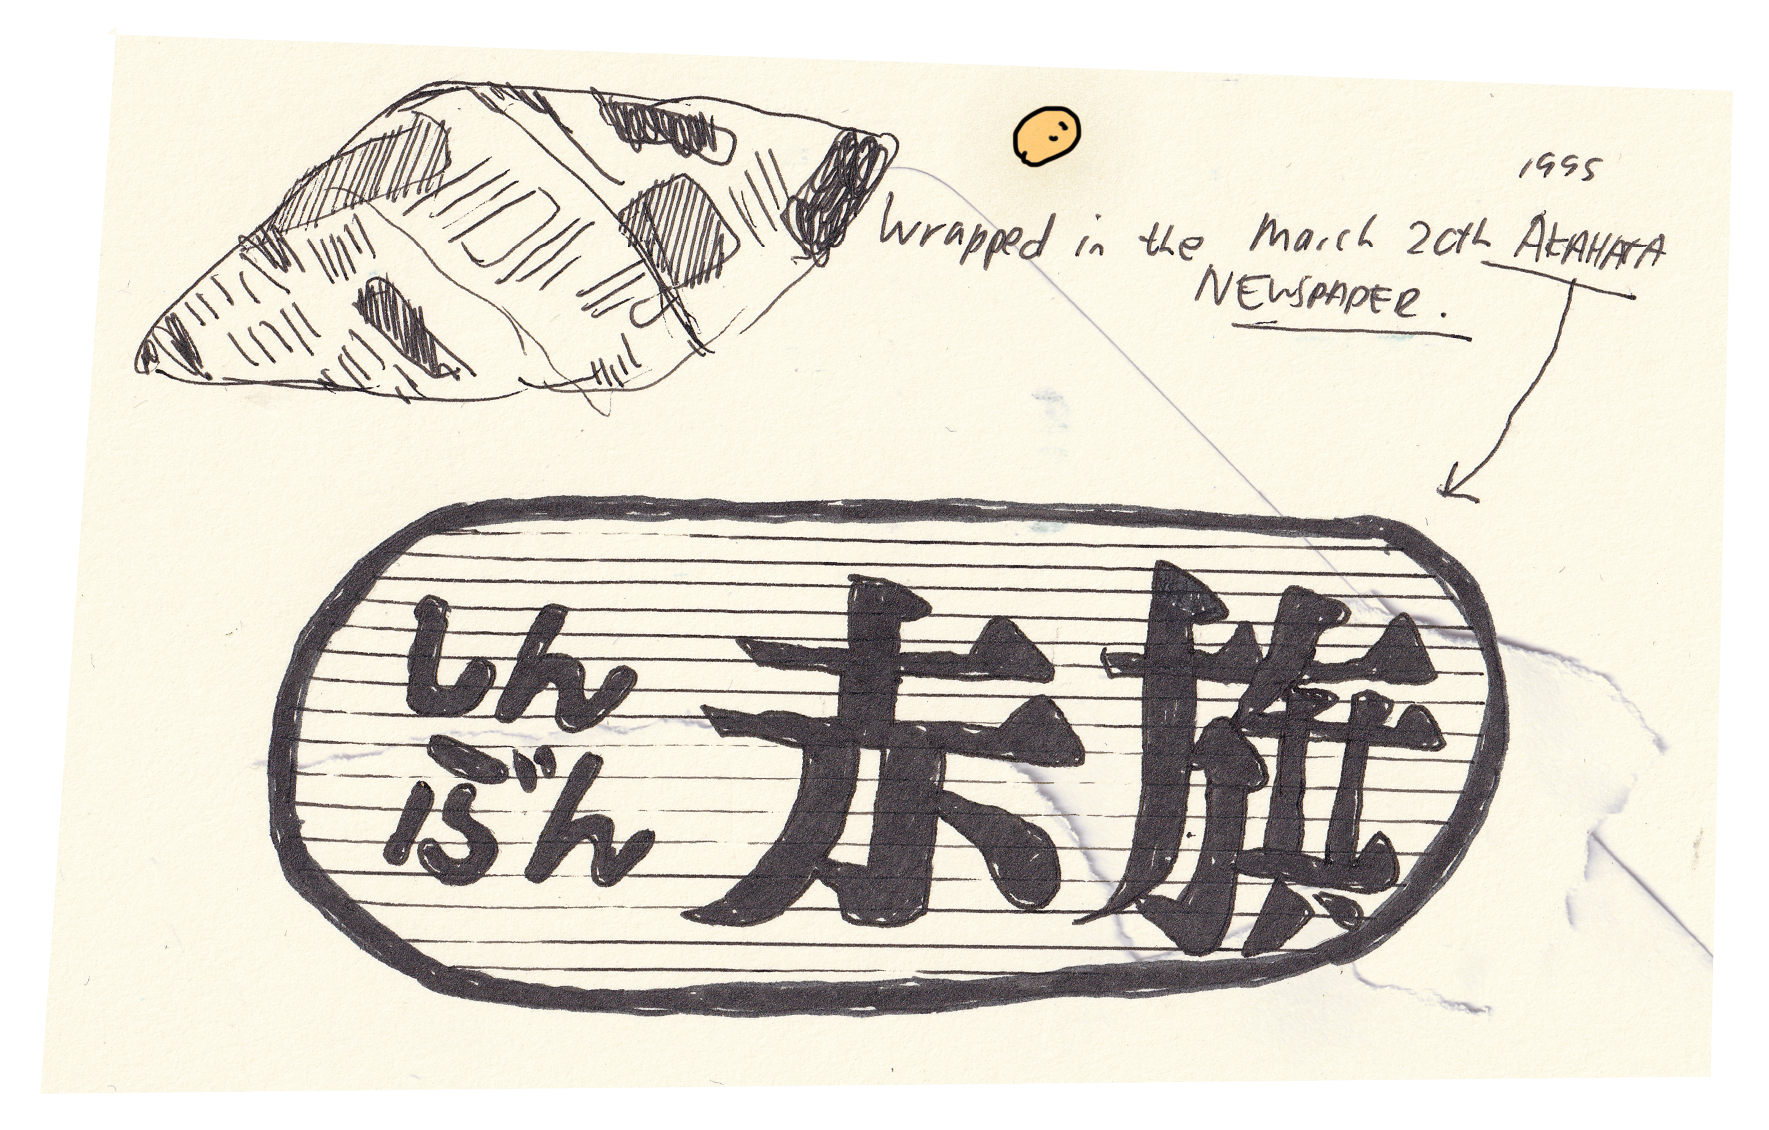 1995
Wrapped in the March 20th AKAHATA
NEWSPAPER.
しん
ぶん
赤旗